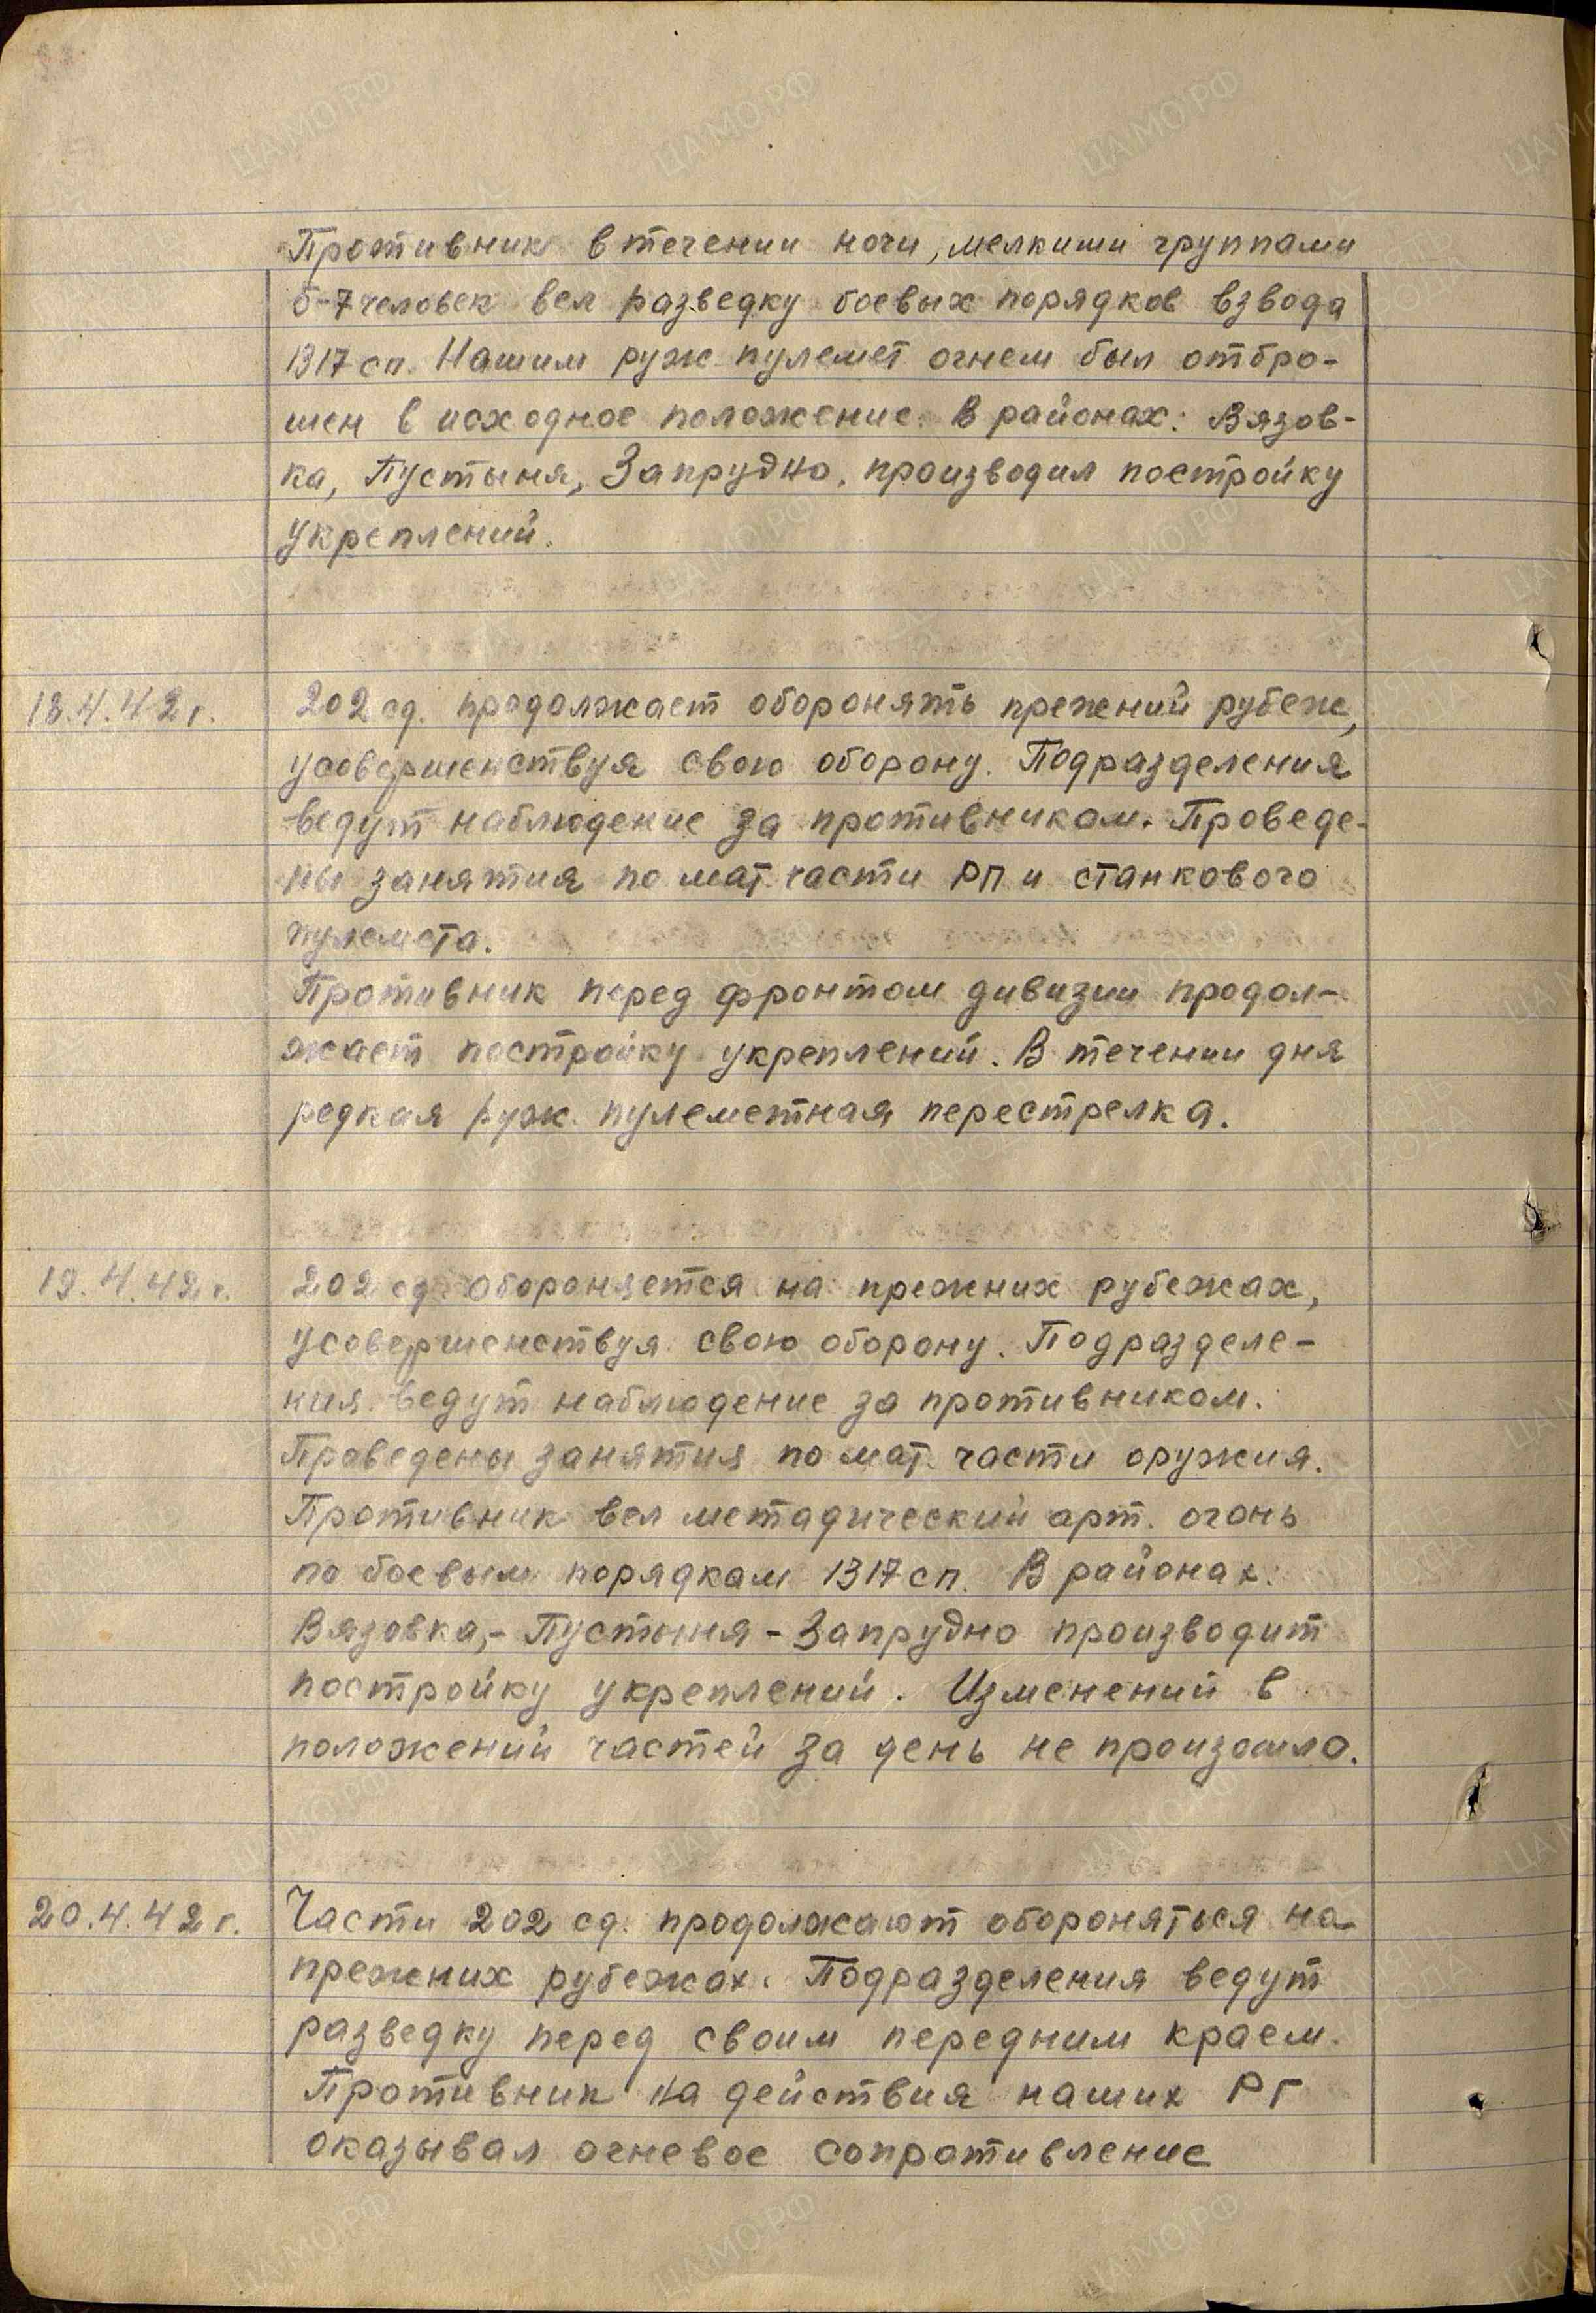 Противник в течении ночи, мелкими группами
5-7 человек вел разведку боевых порядков взвода
1317 сп. Нашим руж. пулемет огнем был отбро-
шен в исходное положение. В районах: Вязов-
ка, Пустыня, Запрудно, производил постройку
укреплений.
18.4.42 г. 202 сд. продолжает оборонять прежний рубеж,
усовершенствуя свою оборону. Подразделения
ведут наблюдение за противником. Проведе-
ны занятия по мат. части РП и станкового
пулемета.
Противник перед фронтом дивизии продол-
жает постройку укреплений. В течении дня
редкая руж. пулеметная перестрелка.
19.4.42 г. 202 сд. обороняется на прежних рубежах,
усовершенствуя свою оборону. Подразделе-
ния ведут наблюдение за противником.
Проведены занятия по мат. части оружия.
Противник вел метадический арт. огонь
по боевым порядкам 1317 сп. В районах:
Вязовка,- Пустыня - Запрудно производит
постройку укреплений. Изменений в
положений частей за день не произошло.
20.4.42 г. Части 202 сд. продолжают обороняться на
прежних рубежах. Подразделения ведут
разведку перед своим передним краем.
Противник на действия наших РГ
оказывал огневое сопротивление